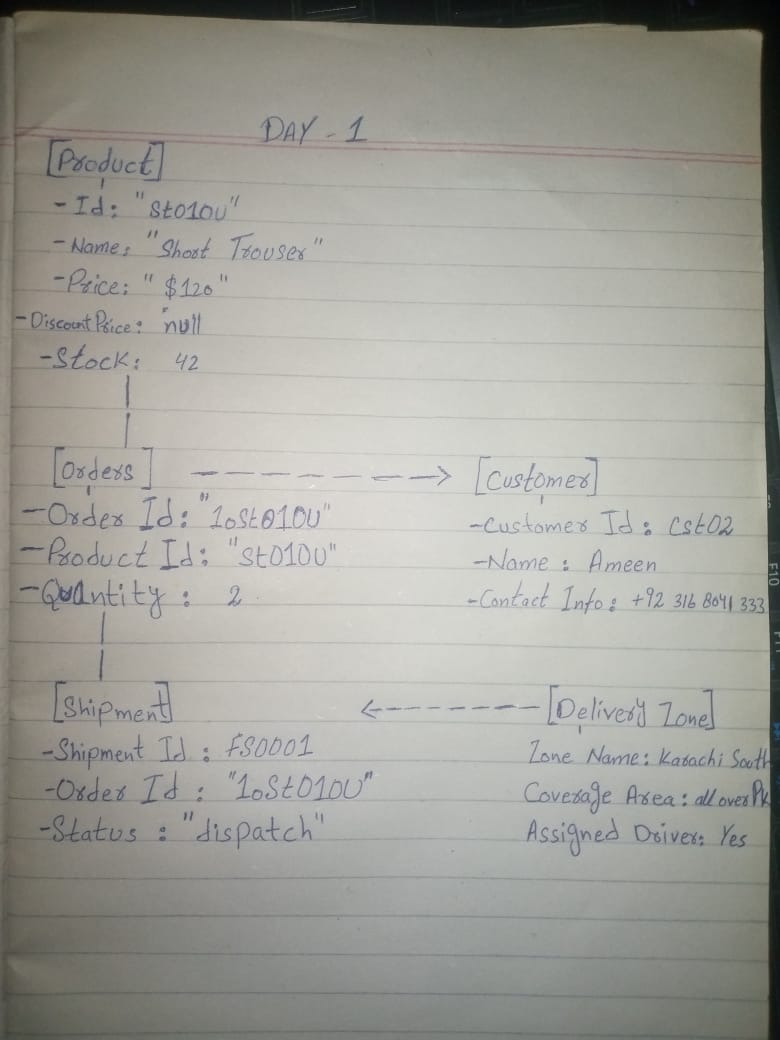 DAY - 1
[Product]
- Id: "St010U"
- Name: "Short Trouser"
- Price: "$120"
- Discount Price: null
- Stock: 42
[Orders] -------> [Customer]
- Order Id: "1oSt010U"
- Product Id: "St010U"
- Quantity: 2
- Customer Id: Cst02
- Name: Ameen
- Contact Info: +92 316 8041 333
[Shipment] <------- [Delivery Zone]
- Shipment Id: FS0001
- Order Id: "1oSt010U"
- Status: "dispatch"
Zone Name: Karachi South
Coverage Area: all over Pk
Assigned Driver: Yes
F10